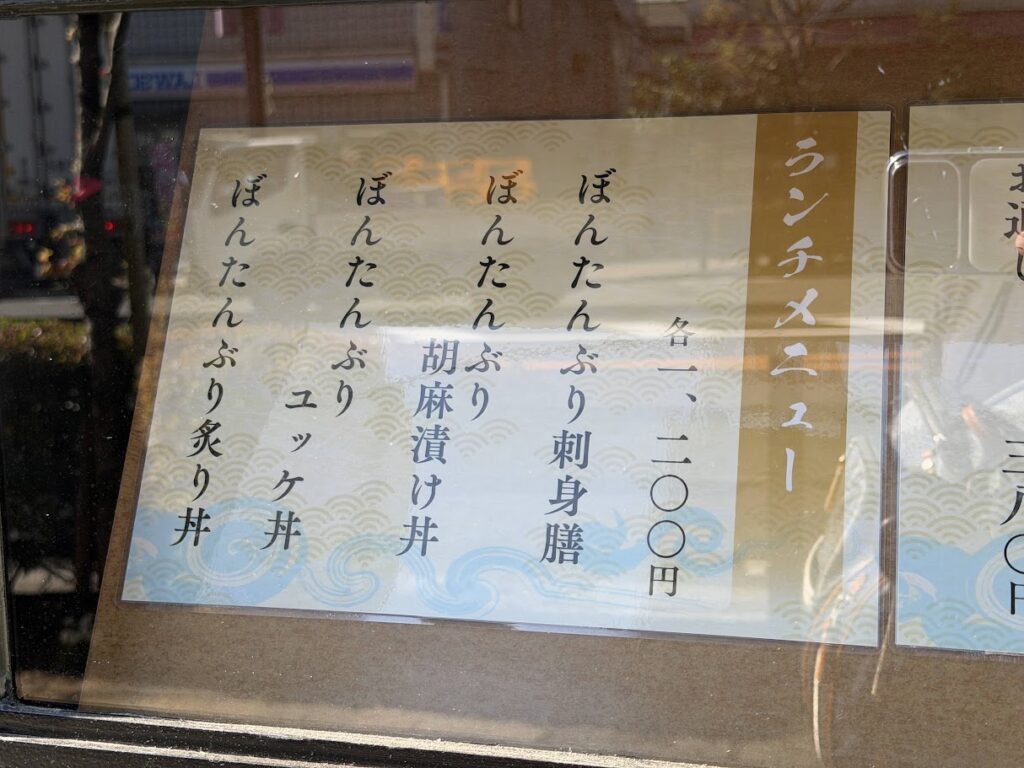 ランチメニュー
各一、二〇〇円
ぼんたんぶり刺身膳
ぼんたんぶり
胡麻漬け丼
ぼんたんぶり
ユッケ丼
ぼんたんぶり炙り丼
お通し
三八〇円
LAWSON